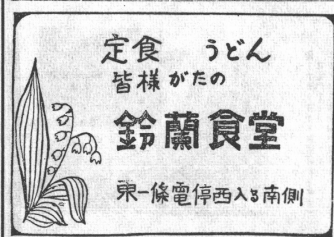 定食　うどん
皆様がたの
鈴蘭食堂
東一條電停西入る南側